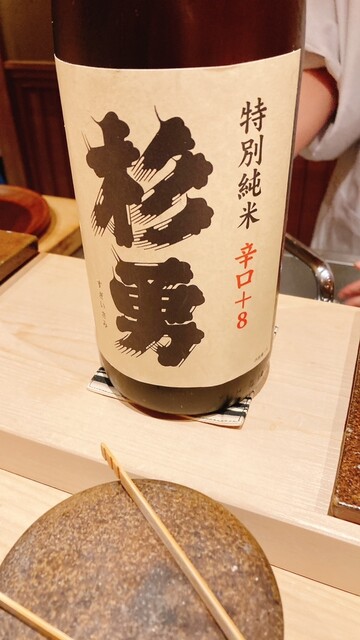 特別純米 辛口+8
杉勇
すぎいさみ